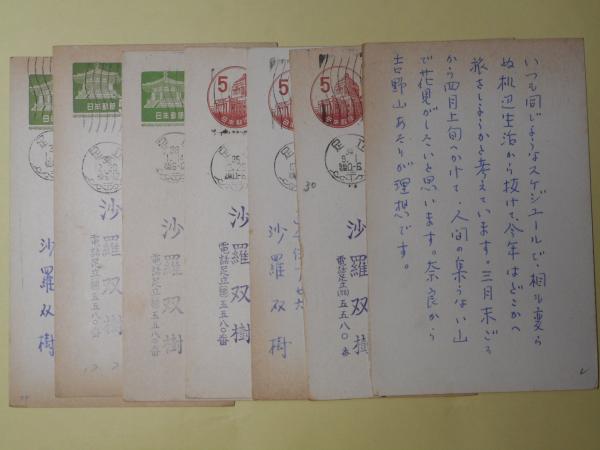 いつも同じようなスケジュールで、相も変ら
ぬ机辺生活から抜けて、今年はどこかへ
旅をしようかと考えています。三月末ごろ
から四月上旬へかけて、人間の集らない山
で花見がしたいと思います。奈良から
吉野山あたりが理想です。
5
日本郵便
足立
沙羅双樹
電話足立
五五八〇番
30
5
沙羅双樹
5
日本郵便
足立
沙羅双樹
電話足立
五五八〇番
日本郵便
足立
沙羅双樹
電話足立
五五八〇番
日本郵便
足立
沙羅双樹
日本
沙羅双樹